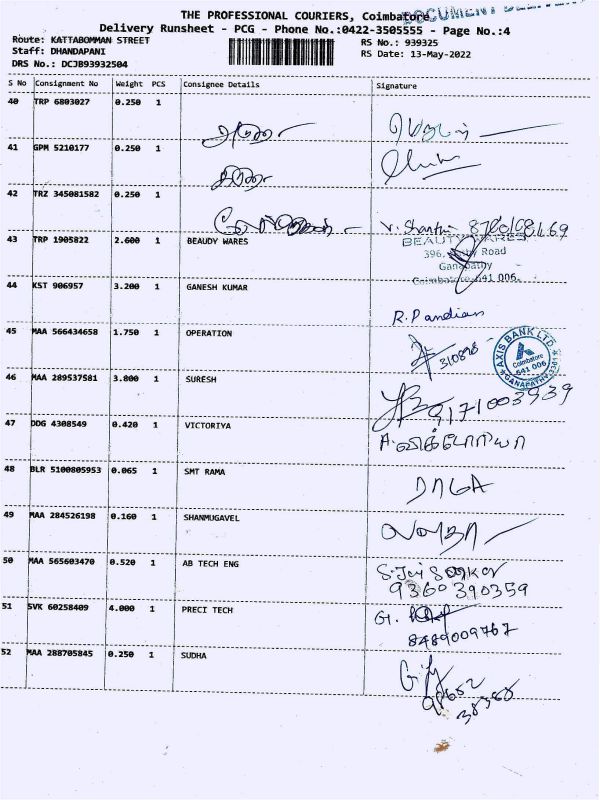 THE PROFESSIONAL COURIERS, Coimbatore
Delivery Runsheet - PCG - Phone No.:0422-3505555 - Page No.:4
Route: KATTABOMMAN STREET
RS No.: 939325
Staff: DHANDAPANI
RS Date: 13-May-2022
DRS No.: DCJB93932504
S No Consignment No Weight PCS Consignee Details Signature
40 TRP 6803027 0.250 1
41 GPM 5210177 0.250 1
42 TRZ 345081582 0.250 1
V. Shanthi
43 TRP 1905822 2.600 1 BEAUDY WARES
BEAUTY WARES
396, Road
Ganapathy
Coimbatore-641 006.
44 KST 906957 3.200 1 GANESH KUMAR
R. Pandian
45 MAA 566434658 1.750 1 OPERATION
310898
AXIS BANK LTD.
Coimbatore
641 006
GANAPATHY
46 MAA 289537581 3.800 1 SURESH
9171003939
47 DDG 4308549 0.420 1 VICTORIYA
A. விக்டோரியா
48 BLR 5100805953 0.065 1 SMT RAMA
49 MAA 284526198 0.160 1 SHANMUGAVEL
50 MAA 565603470 0.520 1 AB TECH ENG
9360390359
51 SVK 60258409 4.000 1 PRECI TECH
8489009767
52 MAA 288705845 0.250 1 SUDHA